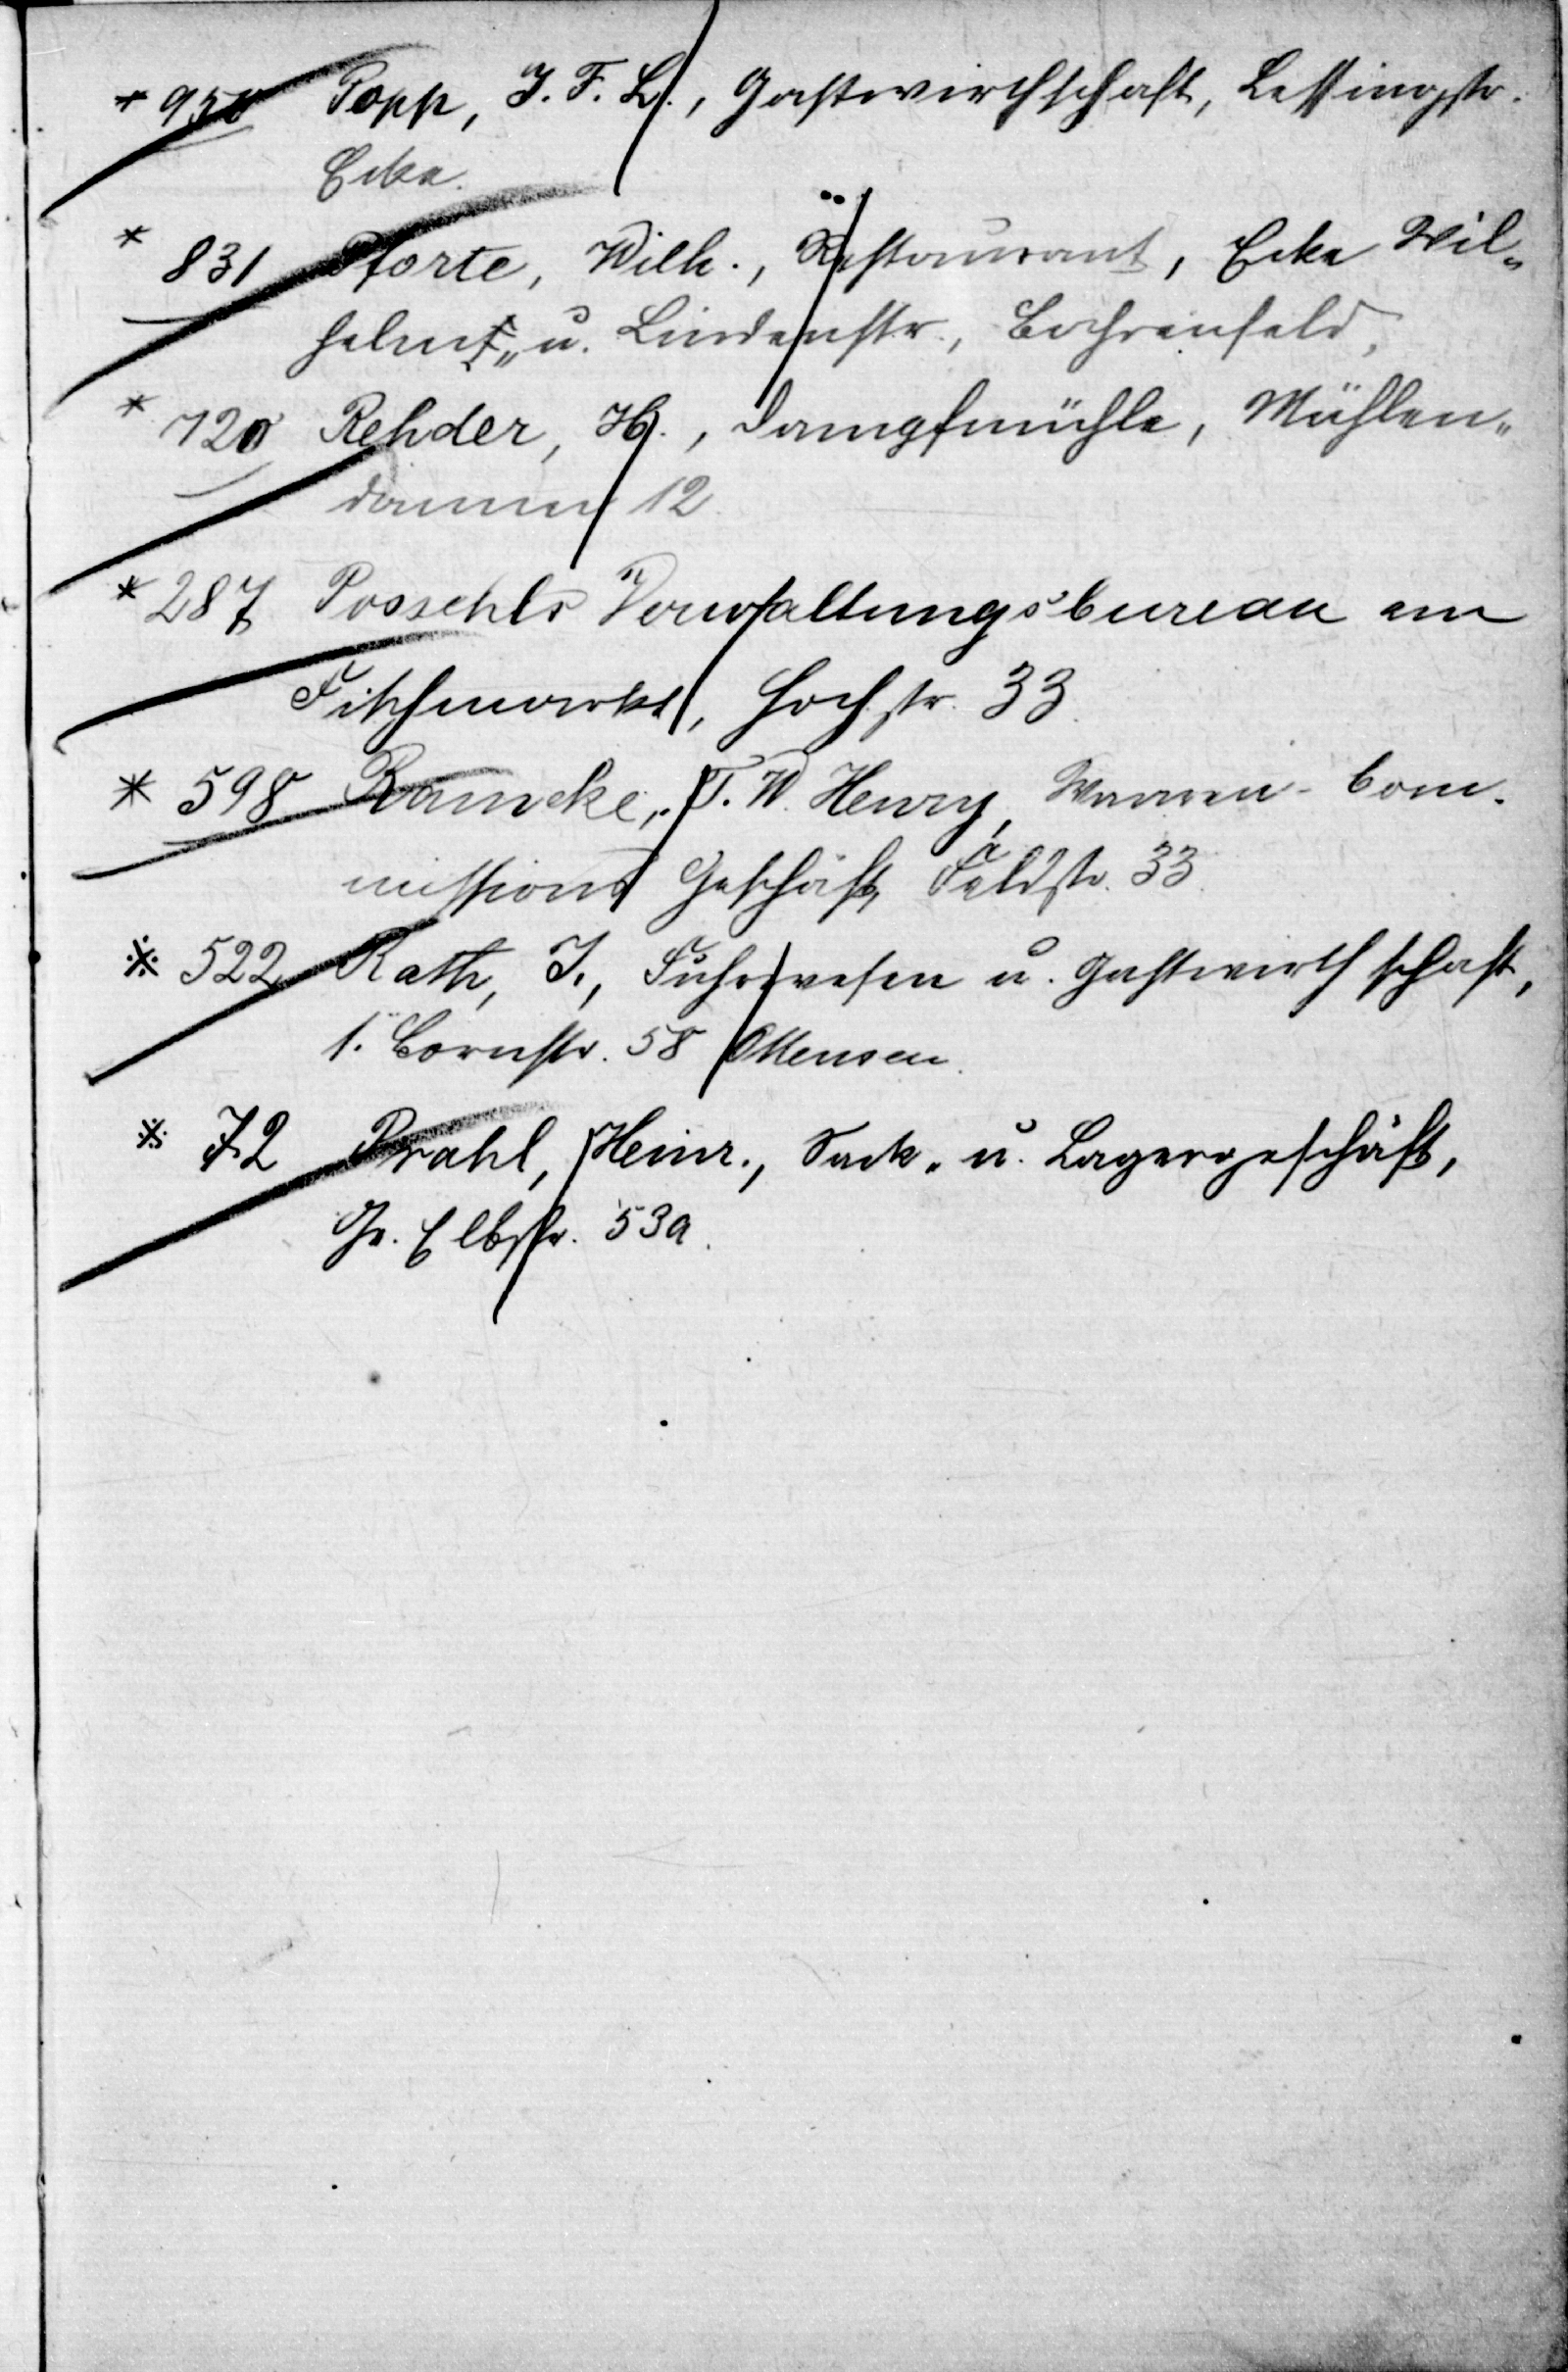 * 950 Popp, J. F. L., Gastwirthschaft, Lessingstr.
Ecke.
* 831 Pforte, Wilh., Restaurant, Ecke Wil„
helms„ u. Lindenstr., Bahrenfeld,
* 720 Rehder, H., Dampfmühle, Mühlen„
damm 12.
* 287 Possehls Verwaltungsbureau am
Fischmarkt, Hochstr. 33.
* 598 Ramcke, T. W. Henry, Waaren-Com-
missions Geschäft, Feldstr. 33.
※ 522 Rath, J., Fuhrwesen u. Gastwirthschaft,
1. Bornstr. 58 Ottensen.
※ 72 Prahl, Heinr., Sack„ u. Lagergeschäft,
Gr. Elbstr. 53a.